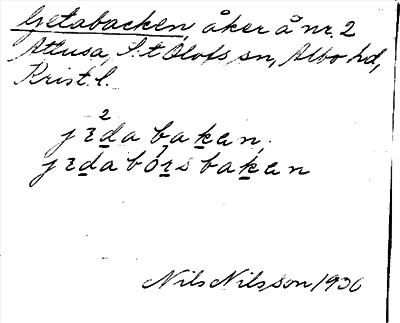 Getabacken, åker å nr. 2
Attusa, S:t Olofs sn, Albo hd,
Krist. l.
2
jɪdabakan,
jɪdabórsbakan
Nils Nilsson 1930